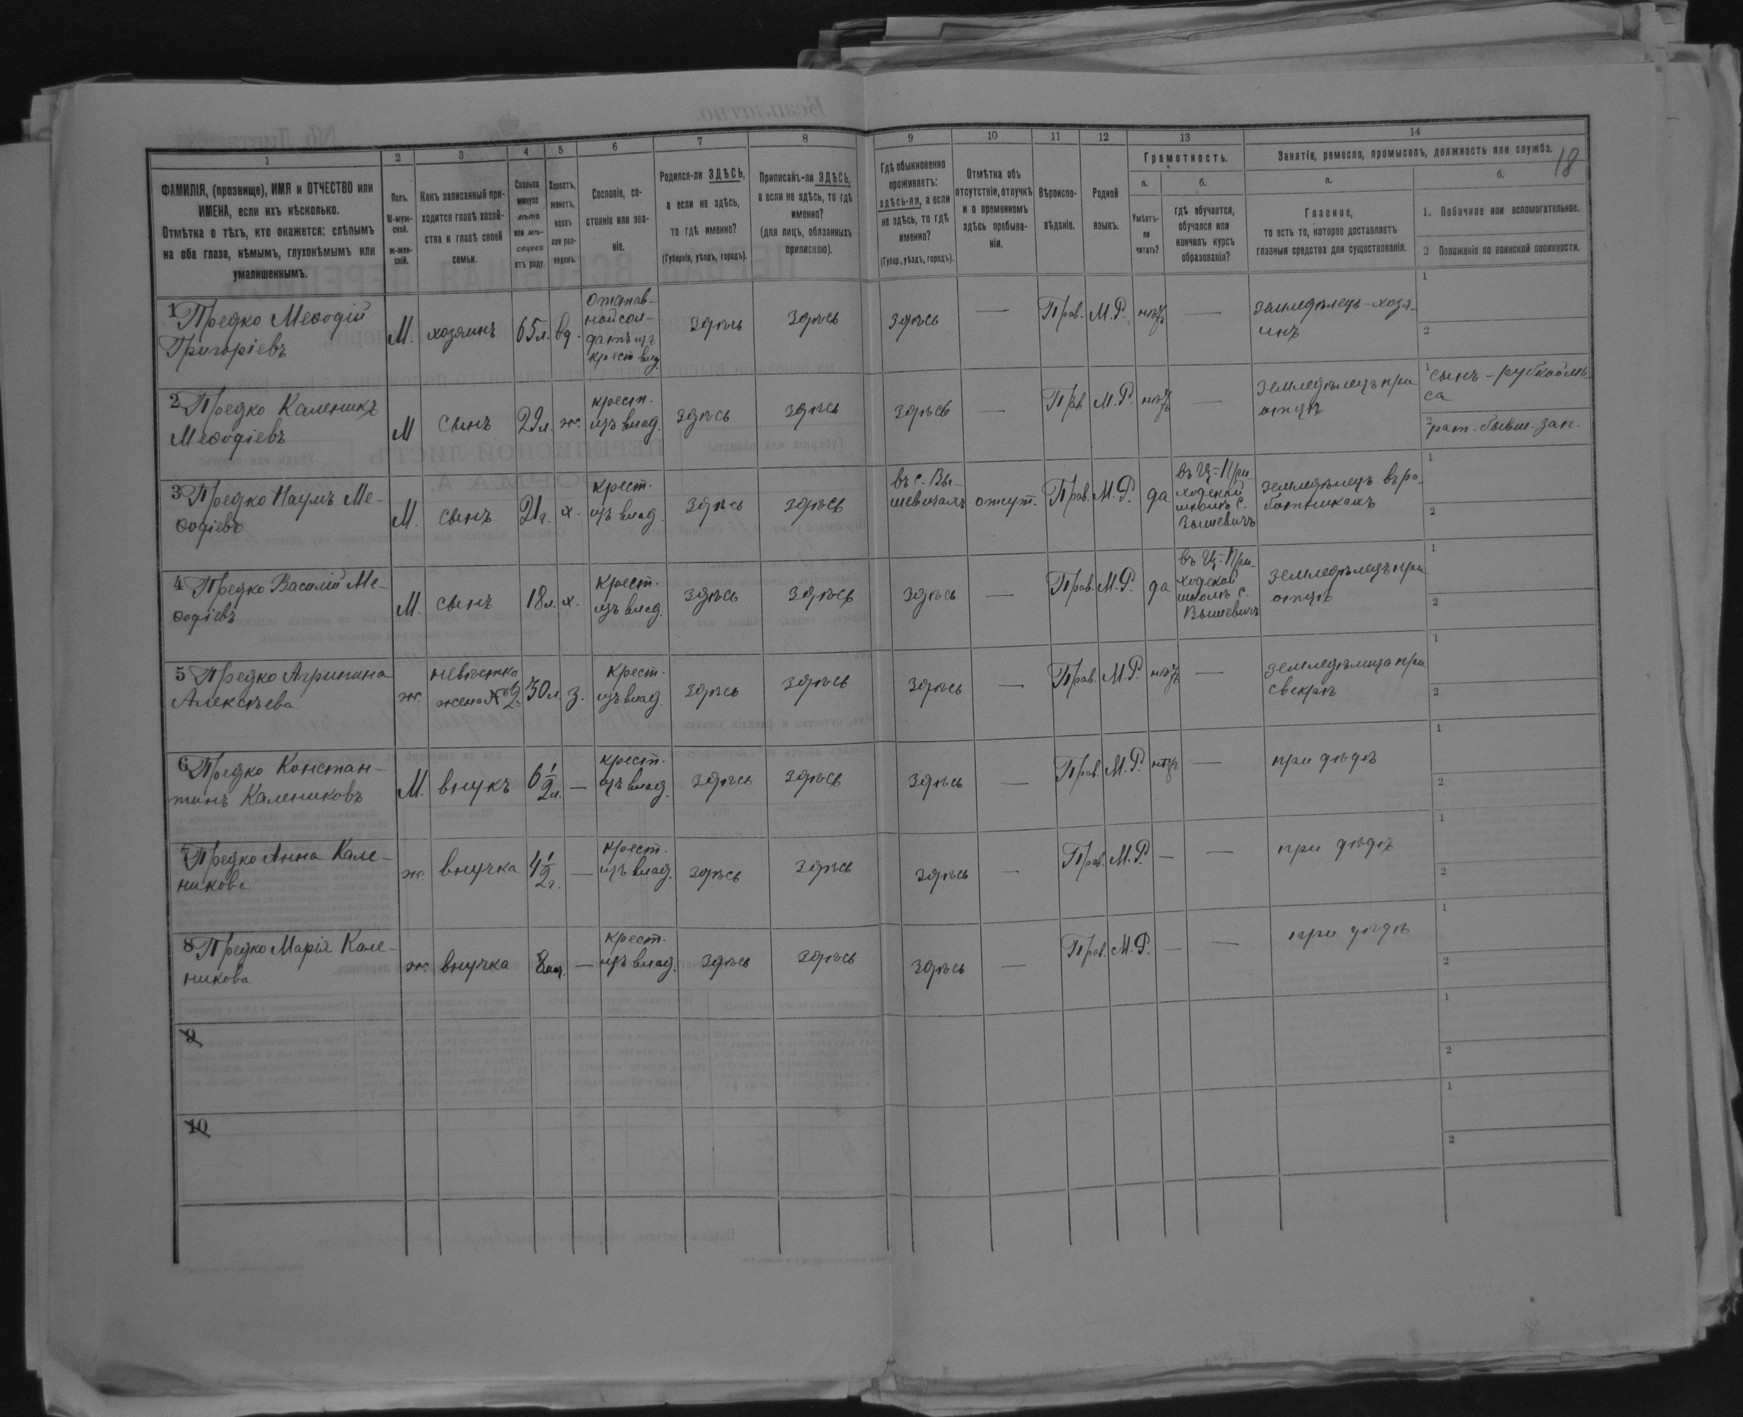 1
2
3
4
5
6
7
8
9
10
11
12
13
14
ФАМИЛІЯ, (прозвище), ИМЯ и ОТЧЕСТВО или
ИМЕНА, если ихъ нѣсколько.
Отмѣтка о тѣхъ, кто окажется: слѣпымъ
на оба глаза, нѣмымъ, глухонѣмымъ или
умалишеннымъ.
Полъ.
М-муж-
ской.
ж-жен-
скій.
Какъ записанный при-
ходится главѣ хозяй-
ства и главѣ своей
семьи.
Сколько
минуло
лѣтъ
или мѣ-
сяцевъ
отъ роду.
Холостъ,
женатъ,
вдовъ
или раз-
веденъ.
Сословіе, со-
стояніе или зва-
ніе.
Родился-ли ЗДѢСЬ,
а если не здѣсь,
то гдѣ именно?
(Губернія, уѣздъ, городъ).
Приписанъ-ли ЗДѢСЬ,
а если не здѣсь, то гдѣ
именно?
(для лицъ, обязанныхъ
припискою).
Гдѣ обыкновенно
проживаетъ:
здѣсь-ли, а если
не здѣсь, то гдѣ
именно?
(Губер., уѣздъ, городъ).
Отмѣтка объ
отсутствіи, отлучкѣ
и о временномъ
здѣсь пребыва-
ніи.
Вѣроиспо-
вѣданіе.
Родной
языкъ.
Грамотность.
а.
Умѣетъ-
ли
читать?
б.
гдѣ обучается,
обучался или
кончилъ курсъ
образованія?
Занятіе, ремесло, промыселъ, должность или служба.
18
а.
Главное,
то есть то, которое доставляетъ
главныя средства для существованія.
б.
1. Побочное или вспомогательное.
2 Положеніе по воинской повинности.
1 Предко Меѳодій
Григоріевъ
М.
хозяинъ
65 л.
вд.
отстав-
ной сол-
датъ изъ
крест. влад.
здѣсь
здѣсь
здѣсь
—
Прав.
М.Р.
нѣтъ
—
земледѣлецъ-хозя-
инъ
1
2
2 Предко Каленикъ
Меѳодіевъ
М
сынъ
29 л.
ж.
крест.
изъ влад.
здѣсь
здѣсь
здѣсь
—
Прав.
М.Р.
нѣтъ
—
земледѣлецъ при
отцѣ
1
2 рат. бывш. зап.
3 Предко Наумъ Ме-
ѳодіевъ
М.
сынъ
21 г.
х.
крест.
изъ влад.
здѣсь
здѣсь
въ с. Вы-
шевичахъ
отсут.
Прав.
М.Р.
да
въ Ц.-При-
ходской
школѣ с.
Вышевичъ
земледѣлецъ въ ра-
ботникахъ
1
2
4 Предко Василій Ме-
ѳодіевъ
М.
сынъ
18 л.
х.
крест.
изъ влад.
здѣсь
здѣсь
здѣсь
—
Прав.
М.Р.
да
въ Ц.-При-
ходской
школѣ с.
Вышевичъ
земледѣлецъ при
отцѣ
1
2
5 Предко Агрипина
Алексѣева
ж.
невѣстка
жена №2
30 л.
з.
крест.
изъ влад.
здѣсь
здѣсь
здѣсь
—
Прав.
М.Р.
нѣтъ
—
земледѣлица при
свекрѣ
1
2
6 Предко Констан-
тинъ Калениковъ
М.
внукъ
6 1/2 л.
—
крест.
изъ влад.
здѣсь
здѣсь
здѣсь
—
Прав.
М.Р.
нѣтъ
—
при дѣдѣ
1
2
7 Предко Анна Кале-
никова
ж.
внучка
4 1/2 г.
—
крест.
изъ влад.
здѣсь
здѣсь
здѣсь
—
Прав.
М.Р.
—
—
при дѣдѣ
1
2
8 Предко Марія Кале-
никова
ж.
внучка
—
крест.
изъ влад.
здѣсь
здѣсь
здѣсь
—
Прав.
М.Р.
—
—
при дѣдѣ
1
2
9
1
2
10
1
2